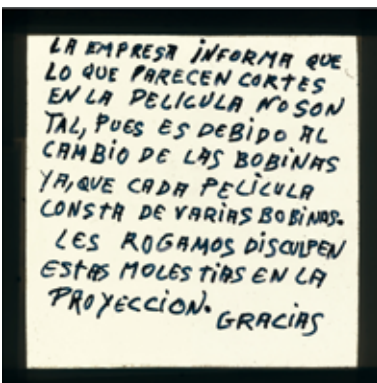 LA EMPRESA INFORMA QUE
LO QUE PARECEN CORTES
EN LA PELICULA NO SON
TAL, PUES ES DEBIDO AL
CAMBIO DE LAS BOBINAS
YA, QUE CADA PELICULA
CONSTA DE VARIAS BOBINAS.
LES ROGAMOS DISCULPEN
ESTAS MOLESTIAS EN LA
PROYECCION.
GRACIAS